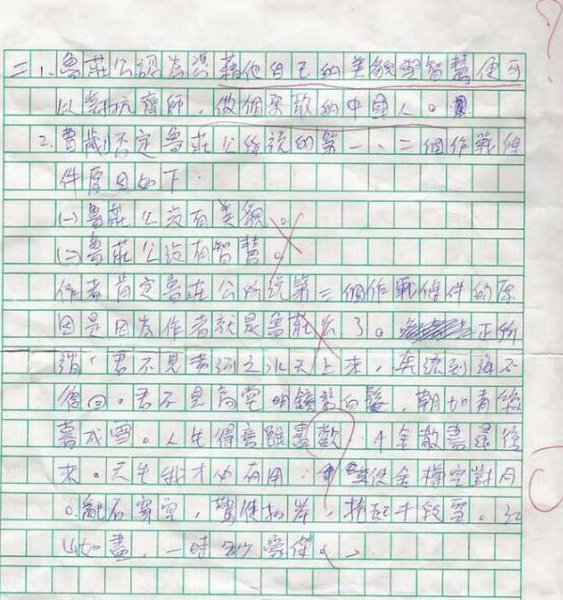 二1.魯莊公認為憑藉他自己的美貌與智慧便可
以對抗齊師,做個勇敢的中國人。
2.曹劌否定魯莊公所說的第一、二個作戰條
件原因如下:
(一)魯莊公沒有美貌。
(二)魯莊公沒有智慧。
作者肯定魯莊公所說第三個作戰條件的原
因是因為作者就是魯莊公了。正所
謂「君不見黃河之水天上來,奔流到海不
復回。君不見高堂明鏡悲白髮,朝如青絲
暮成雪。人生得意雖盡歡,千金散盡還復
來。天生我才必有用:使金樽空對月
。亂石穿空,驚濤拍岸,捲起千段雪。江
山如畫,一時多少豪傑。」